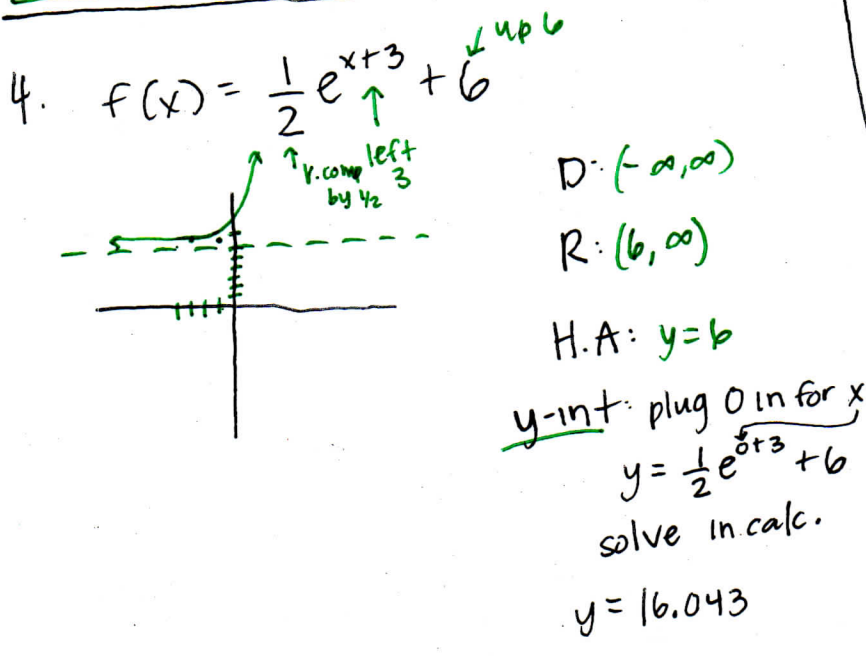 4. f(x) = 1/2 e^(x+3) + 6
↙ up 6
↑ v. comp by 1/2
↑ left 3
D: (-∞,∞)
R: (6, ∞)
H.A: y=6
y-int: plug 0 in for x
y = 1/2 e^(0+3) + 6
solve in calc.
y = 16.043